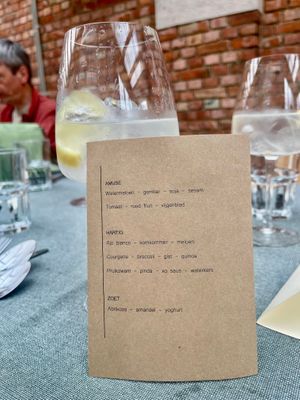 AMUSE
Watermeloen - gember - soja - sesam
Tomaat - rood fruit - vijgenblad
HARTIG
Ajo blanco - komkommer - meloen
Courgette - broccoli - gist - quinoa
Pruikzwam - pinda - xo saus - waterkers
ZOET
Abrikoos - amandel - yoghurt